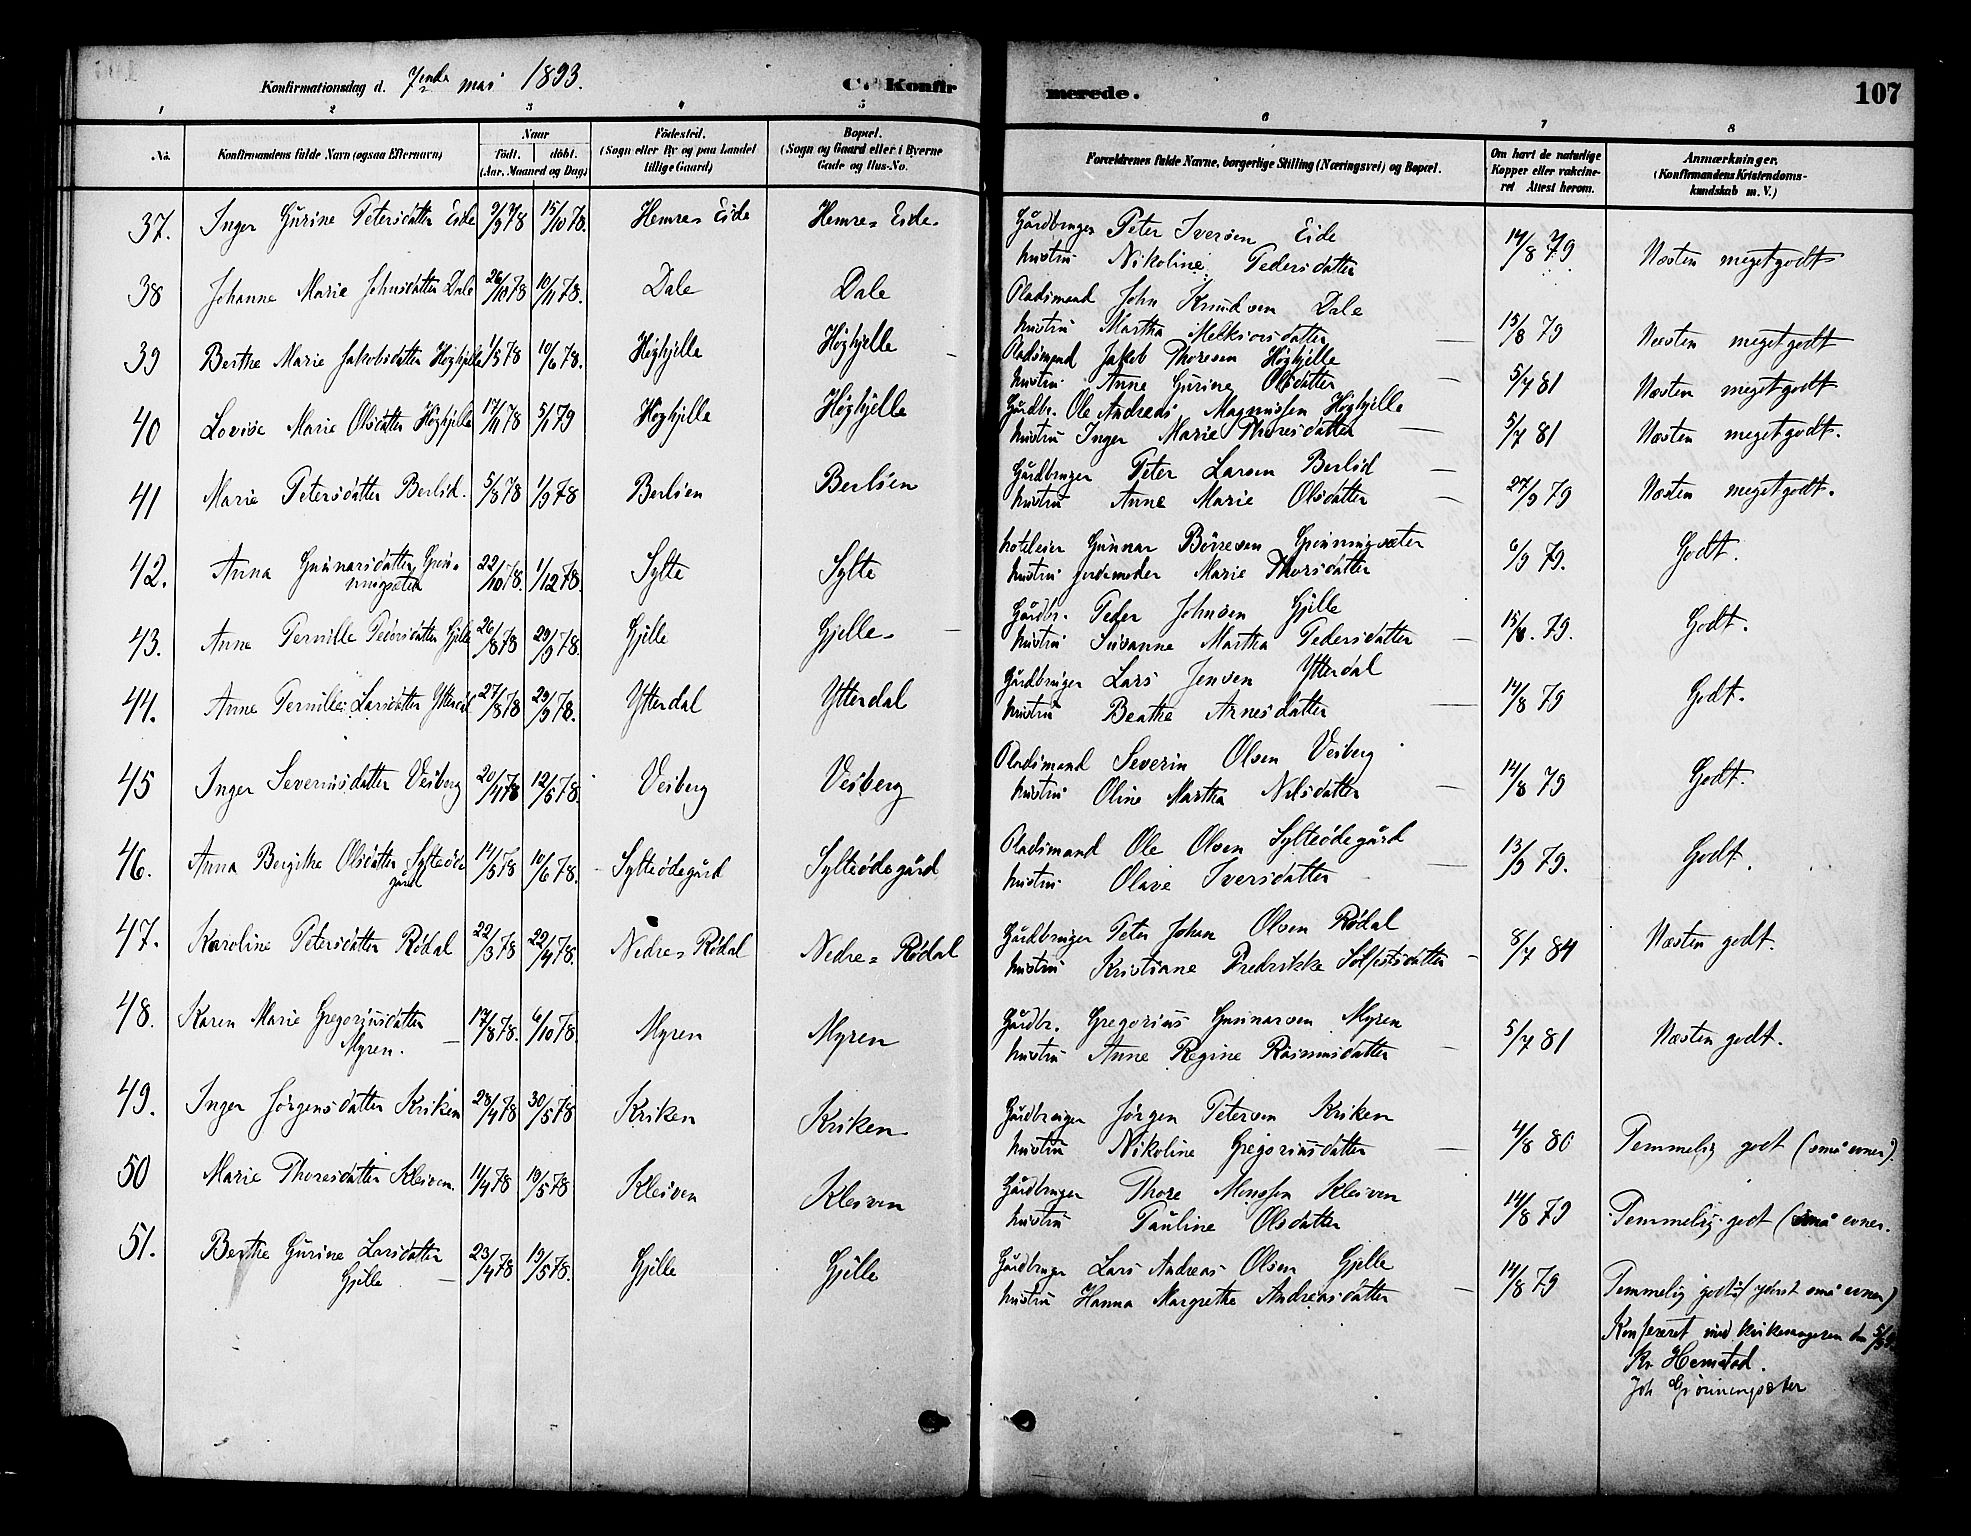 Konfirmationsdag d. 7nde mai 1893.
C. Konfirmerede.
107
1 2 3 4 5 6 7 8
No.
Konfirmandens fulde Navn (ogsaa Efternavn)
Naar
födt. döbt.
(Aar, Maaned og Dag)
Födested.
(Sogn eller By og paa Landet
tillige Gaard)
Bopæl.
(Sogn og Gaard eller i Byerne
Gade og Hus-No.
Forældrenes fulde Navne, borgerlige Stilling (Næringsvei) og Bopæl.
Om havt de naturlige
Kopper eller vakcine-
ret Attest herom.
Anmærkninger.
(Konfirmandens Kristendoms-
kundskab m. V.)
37. Inger Gurine Petersdatter Eide 9/9 78 15/10 78. Hemre= Eide Hemre= Eide. Gårdbruger Peter Iversen Eide 14/8 79 Næsten meget godt
hustru Nikoline Pedersdatter
38 Johanne Marie Johnsdatter Dale 26/10 78 10/11 78. Dale Dale Pladsmand John Knudsen Dale 15/8 79 Næsten meget godt
hustru Martha Melkiorsdatter
39 Berthe Marie Jakobsdatter Høghjelle 1/5 78 10/6 78. Høghjelle Høghjelle Pladsmand Jakob Thoresen Høghjelle 5/7 81 Næsten meget godt
hustru Anne Gurine Olsdatter
40 Lovise Marie Olsdatter Høghjelle 17/11 78 5/1 79 Høghjelle Høghjelle Gårdbr. Ole Andreas Magnussen Høghjelle 5/7 81 Næsten meget godt.
hustru Inger Marie Thoresdatter
41 Marie Petersdatter Berlid. 5/8 78 1/9 78 Berlien Berlien Gårdbruger Peter Larsen Berlid 27/9 79 Næsten meget godt.
hustru Anne Marie Olsdatter
42. Anna Gunnarsdatter Grøn-
ningsæter 22/10 78. 1/12 78. Sylte Sylte hoteleier Gunnar Börresen Grönningsæter 6/9 79. Godt.
hustru jordemoder Marie Thorsdatter
43. Anne Pernille Pedersdatter Gjelle 26/8 78 29/9 78. Gjelle Gjelle Gårdbr. Peder Johnsen Gjelle 15/8. 79. Godt.
hustru Susanne Martha Pedersdatter
44. Anne Pernille Larsdatter Ytterdal 27/8 78 29/9 78. Ytterdal Ytterdal Gårdbruger Lars Jensen Ytterdal 14/8 79 Godt.
hustru Beathe Arnesdatter
45 Inger Severinsdatter Veiberg 20/4 78 12/5 78. Veiberg Veiberg Pladsmand Severin Olsen Veiberg 14/8 79 Godt.
hustru Oline Martha Nilsdatter
46. Anna Bergithe Olsdatter Sylteøde-
gård 14/5 78 10/6 78. Sylteødegård Sylteødegård Pladsmand Ole Olsen Sylteødegård 13/9 79. Godt.
hustru Olave Iversdatter
47. Karoline Petersdatter Rødal 22/3 78 22/4 78. Nedre= Rødal Nedre= Rødal Gårdbruger Peter Johan Olsen Rødal 8/7 84 Næsten godt.
hustru Kristiane Fredrikke
48. Karen Marie Gregoriusdatter
Myren. 17/8 78. 6/10 78. Myren Myren Gårdbr. Gregorius Gunnarsen Myren 5/7 81 Næsten godt.
hustru Anne Regine Rasmusdatter
49. Inger Jørgensdatter Kriken 28/4 78 30/5 78 Kriken Kriken Gårdbruger Jørgen Petersen Kriken 4/8 80 Temmelig godt (små evner).
hustru Nikoline Gregoriusdatter
50 Marie Thoresdatter Kleiven. 14/4 78 19/5 78 Kleiven Kleiven Gårdbruger Thore Monssen Kleiven 14/8 79 Temmelig godt (små evner.
hustru Pauline Olsdatter
51. Berthe Gurine Larsdatter
Gjelle 23/4 78 19/5 78. Gjelle Gjelle Gårdbruger Lars Andreas Olsen Gjelle 14/8 79 Temmelig godt (yderst små evner)
hustru Hanna Margrethe Andreasdatter
Konfereret med kirkesangeren den
Kr Hemstad.
Joh Grønningsæter